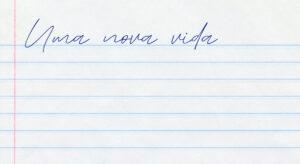 Uma nova vida